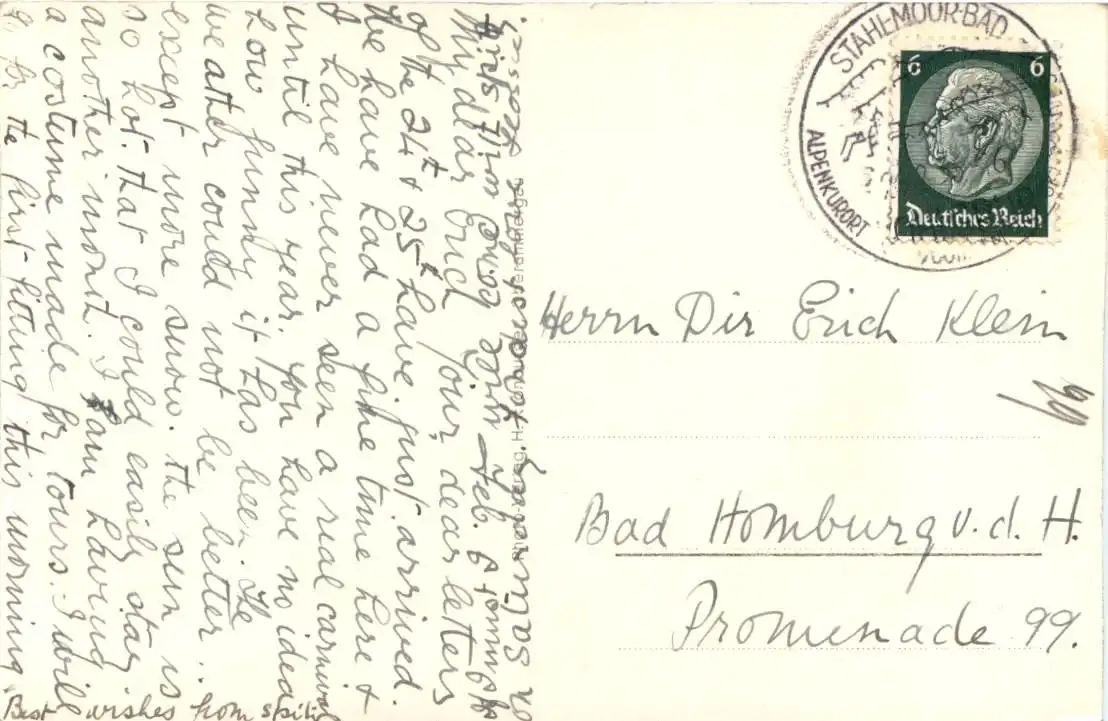 My dear Erich, your dear letters
of the 24t & 25t have just arrived.
We have had a fine time here &
I have never seen a real carnival
until this year. You have no idea
how funny it has been. The
weather could not be better ..
except more snow. the sun is
so hot that I could easily stay
another month. I am having
a costume made for tours. I will
go for the first fitting this morning
Best wishes from
STAHL-MOOR-BAD
ALPENKURORT
6 6
Deutsches Reich
Herrn Dir Erich Klein
Bad Homburg v.d.H.
Promenade 99.